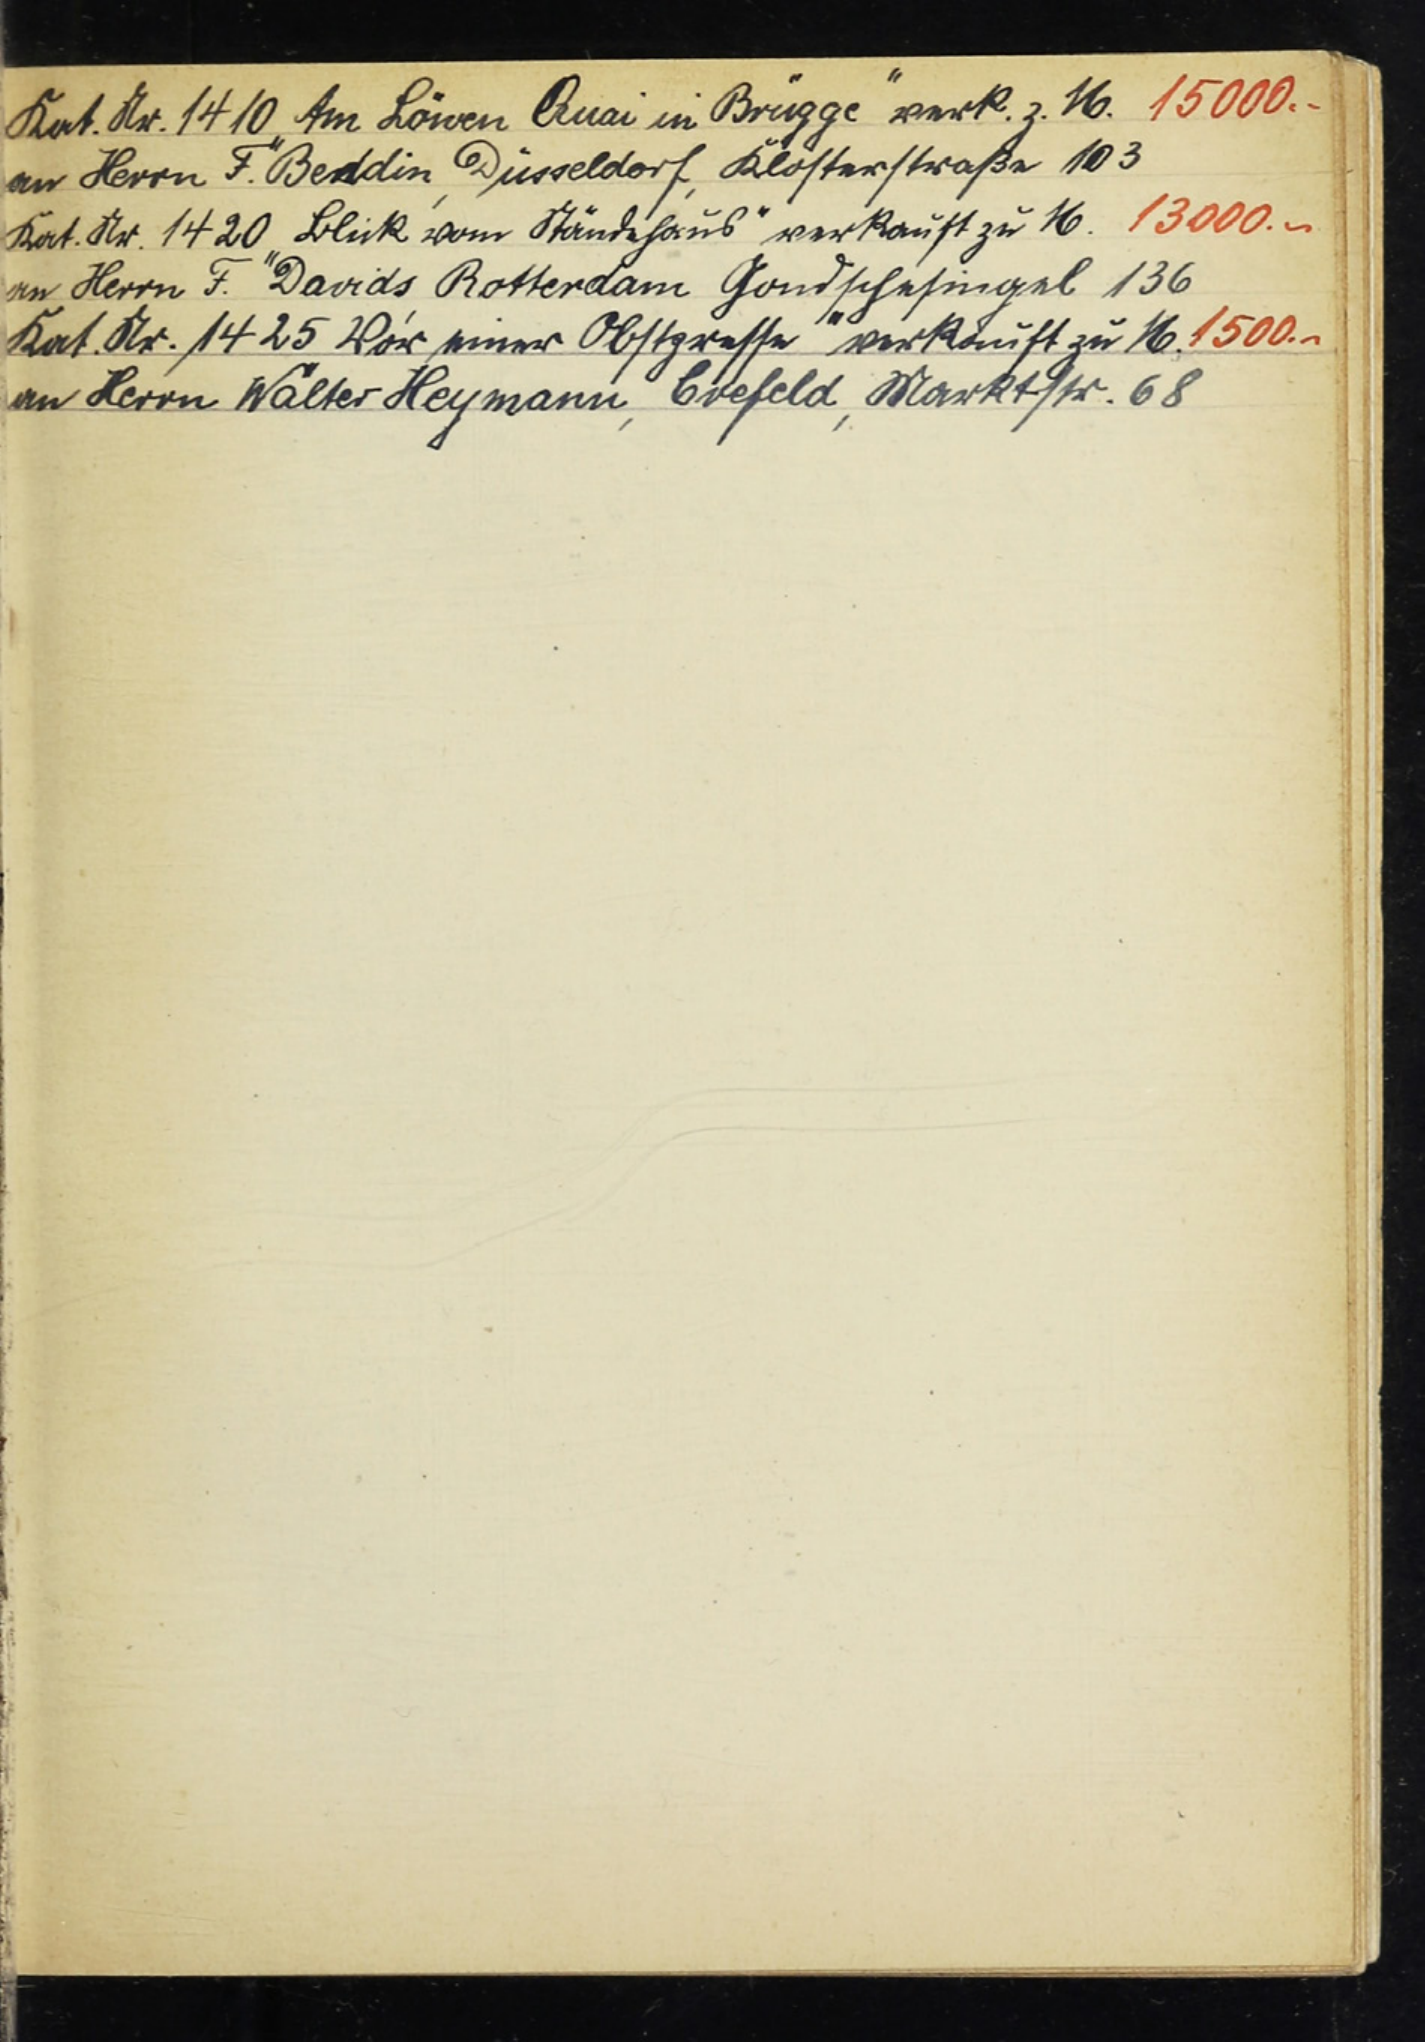 Kat. Nr. 1410 „Am Löwen Quai in Brügge“ verk. z. M. 15000.-
an Herrn F. Beddin, Düsseldorf, Klosterstraße 103
Kat. Nr. 1420 „Blick vom Ständehaus“ verkauft zu M. 13000.-
an Herrn F. Davids Rotterdam Goudschesingel 136
Kat. Nr. 1425 „Vor einer Obstpresse“ verkauft zu M. 1500.-
an Herrn Walter Heymann, Crefeld, Marktstr. 68